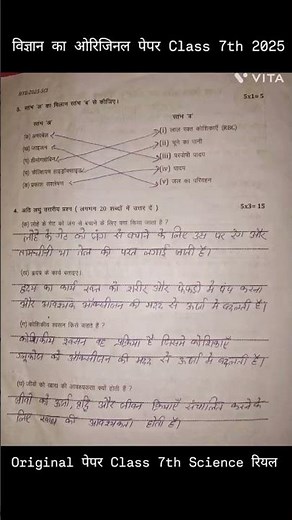 विज्ञान का ओरिजिनल पेपर Class 7th 2025
VITA
3. स्तंभ 'अ' का मिलान स्तंभ 'ब' से कीजिए। 5x1= 5
स्तंभ 'अ' स्तंभ 'ब'
(अ) अमरबेल (i) लाल रक्त कोशिकाएँ (RBC)
(ब) जाइलम (ii) चूने का पानी
(स) हीमोग्लोबिन (iii) परजीवी पादप
(द) कैल्शियम हाइड्रॉक्साइड (iv) पादप
(इ) प्रकाश संश्लेषण (v) जल का परिवहन
4. अति लघु उत्तरीय प्रश्न ( लगभग 20 शब्दों में उत्तर दें ) 5x3= 15
(क) लोहे के गेट को जंग से बचाने के लिए क्या किया जाता है ?
लोहे के गेट को जंग से बचाने के लिए उस पर रंग और
या तेल की परत लगाई जाती है।
(ख) हृदय के कार्य बताइए।
हृदय का कार्य रक्त को शरीर और फेफड़ो में पंप करना
और आवश्यक ऑक्सीजन की मदद से ऊर्जा में बदलती है।
(ग) कोशिकीय श्वसन किसे कहते हैं ?
कोशिकीय श्वसन वह प्रक्रिया है जिसमे कोशिकाएँ
ग्लूकोज को ऑक्सीजन की मदद से ऊर्जा में बदलती है।
(घ) जीवों को खाद्य की आवश्यकता क्यों होती है ?
जीवों को ऊर्जा, वृद्धि और जीवन क्रियाएँ संचालित करने के
लिए खाद्य की आवश्यकता होती है।
Original पेपर Class 7th Science रियल